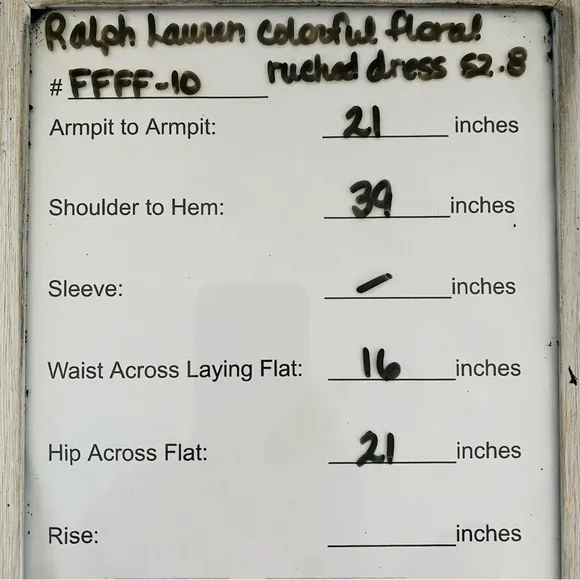 Ralph Lauren colorful floral
ruched dress sz.8
# FFFF-10
Armpit to Armpit: 21 inches
Shoulder to Hem: 39 inches
Sleeve: — inches
Waist Across Laying Flat: 16 inches
Hip Across Flat: 21 inches
Rise: ______ inches